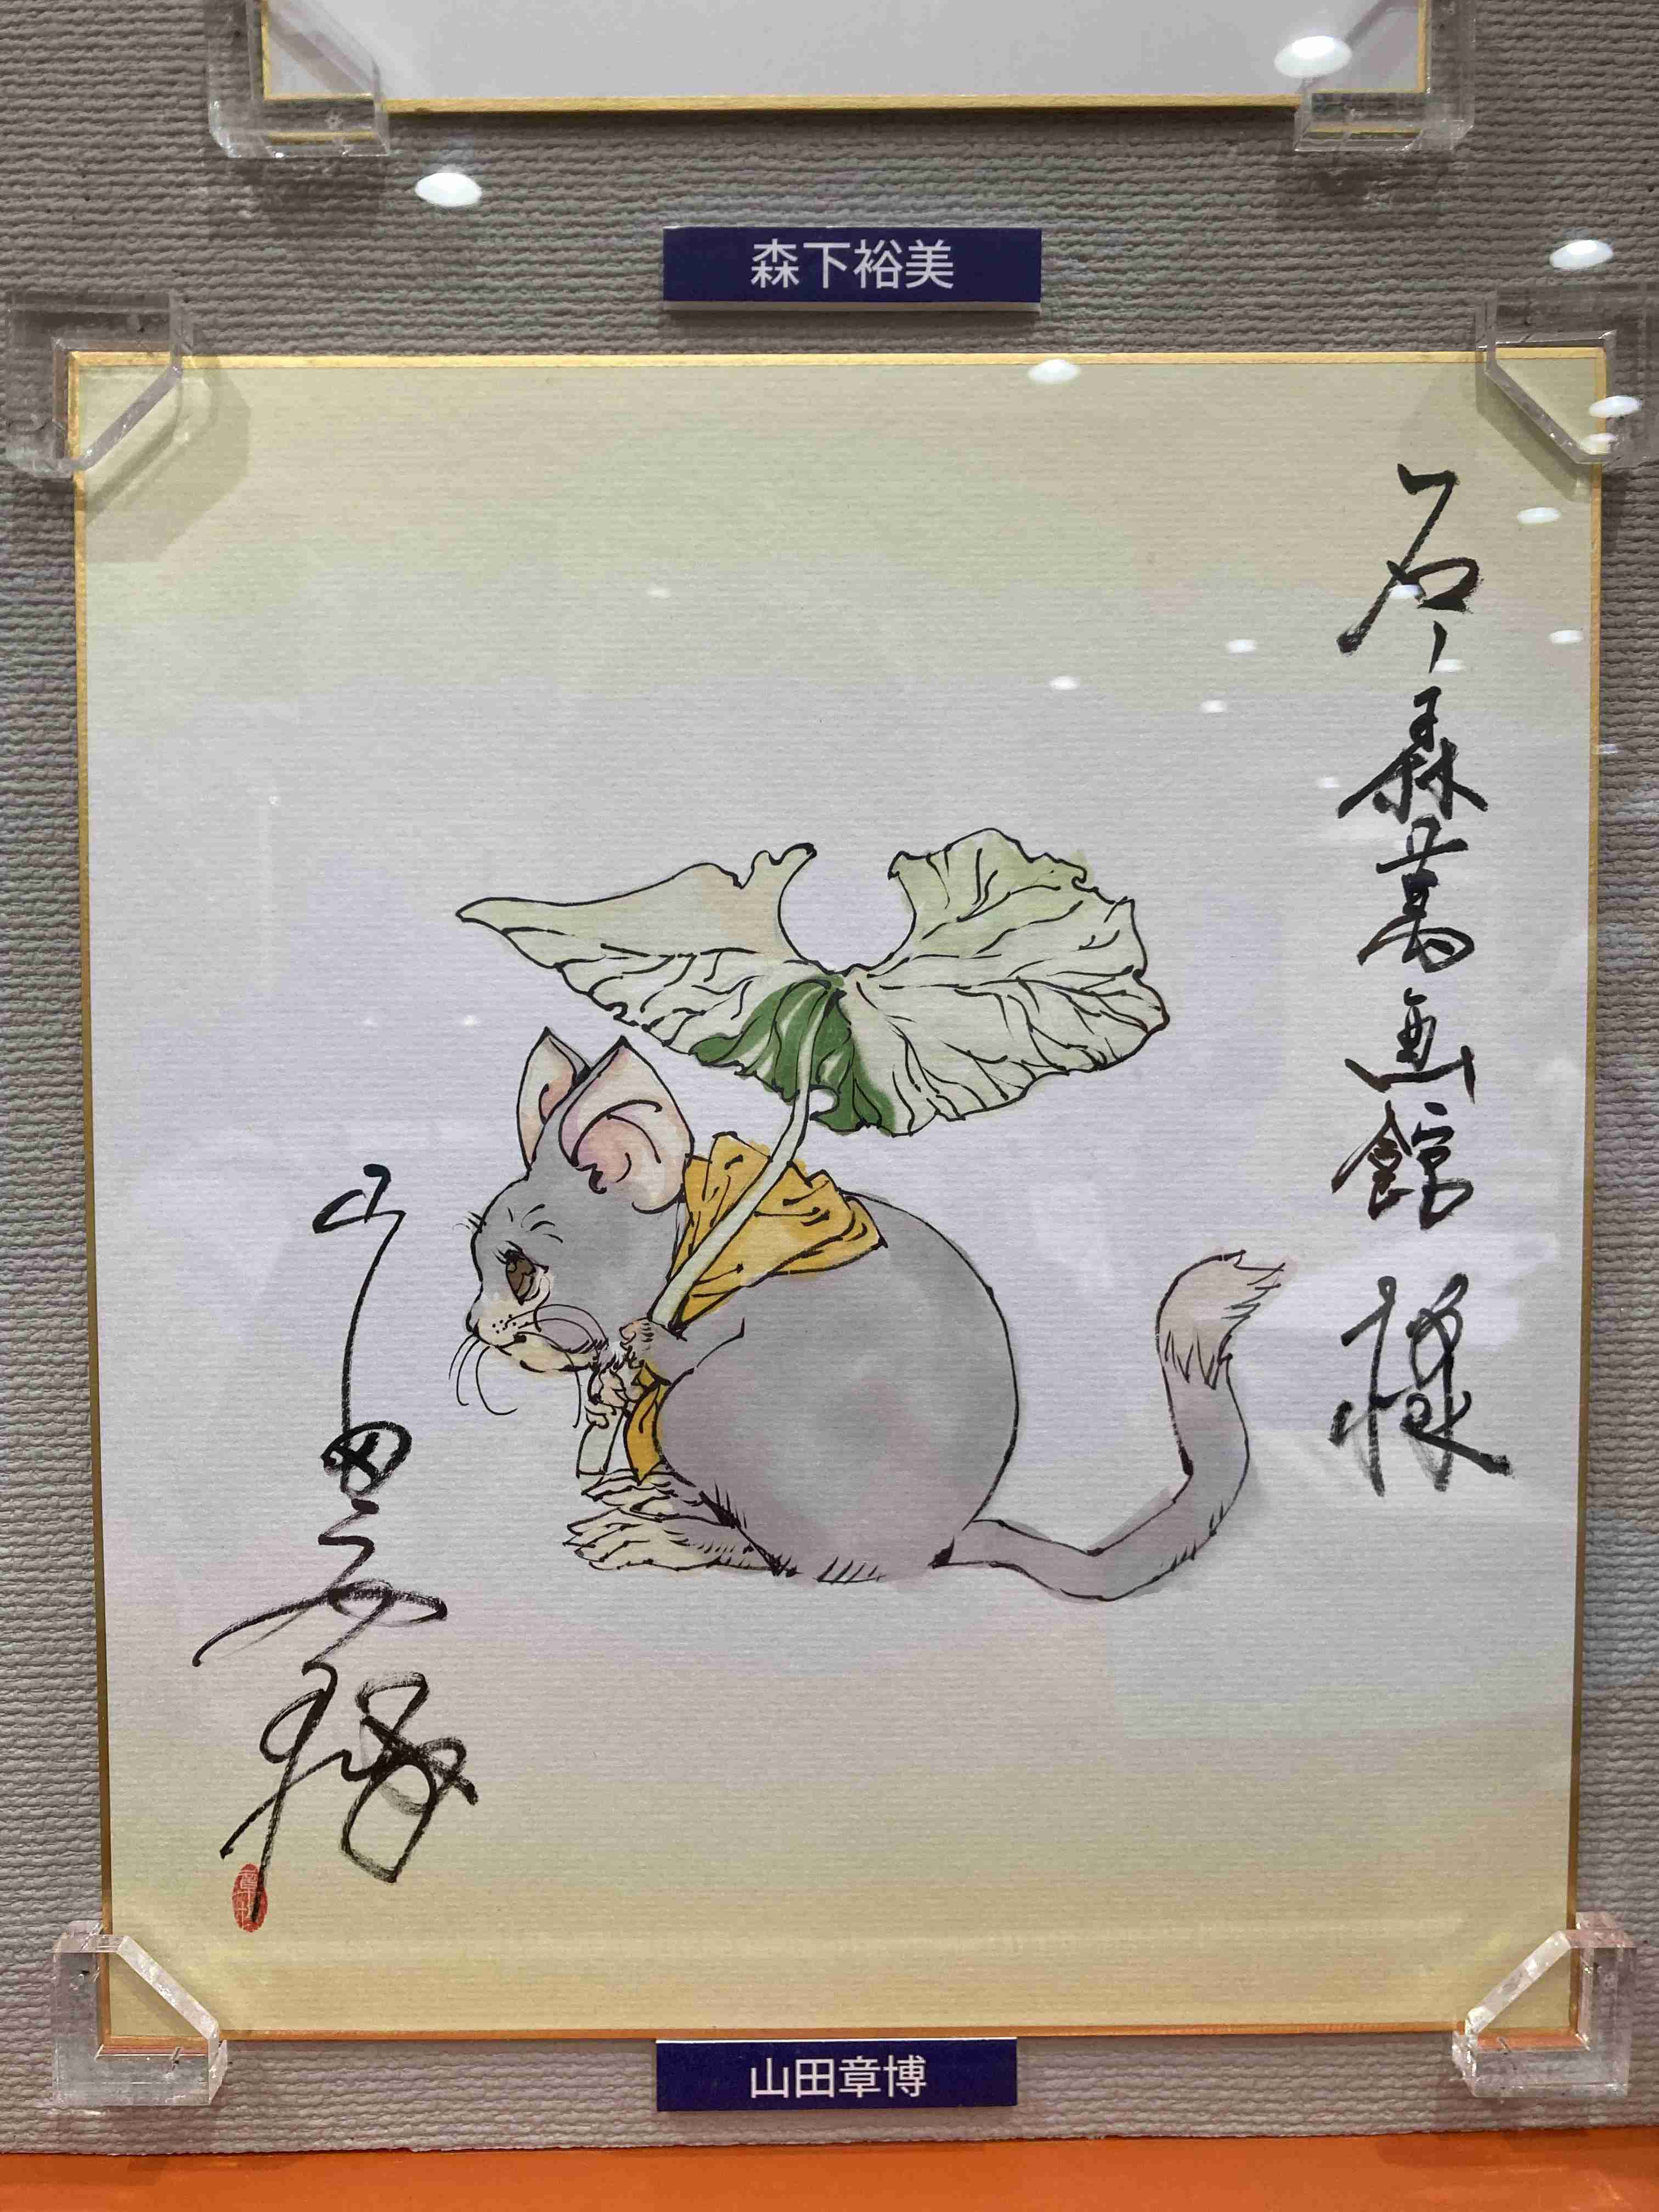 森下裕美
石ノ森萬画館 様
山田章博
山田章博